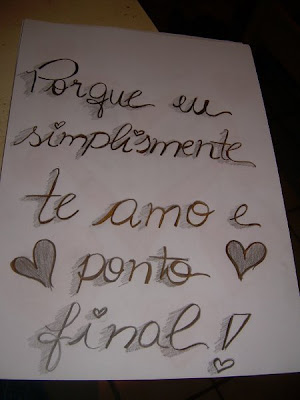 Porque eu
simplismente
te amo e
ponto
final!